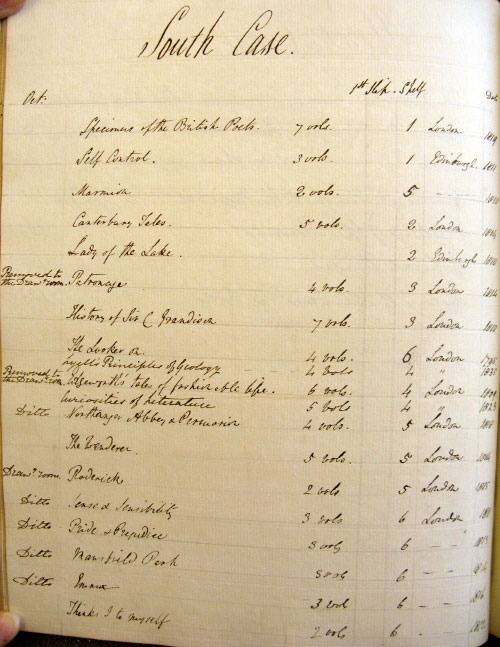 South Case.
1st Slip. Shelf Date
Oct:
Specimens of the British Poets. 7 vols. 1 London 1819
Self Control. 3 vols. 1 Edinburgh 1811
Marmion 2 vols. 5 - -
Canterbury Tales. 5 vols. 2 London
Lady of the Lake. 2 Edinburgh 1810
Removed to
the Draw:g room. Patronage 4 vols. 3 London 1814
History of Sir C Grandison 7 vols. 3 London
The Looker on. 4 vols. 6 London
Lyell's Principles of Geology 4 vols 4 " 1835
Removed to
the Draw:g room Edgeworth's tales of fashionable life. 6 vols. 4 London
Curiosities of Literature 5 vols 4 " 1823
Ditto Northanger Abbey & Persuasion 4 vols. 5 London 1818
The Wanderer. 5 vols. 5 London
Draw:g room Roderick 2 vols. 5 London 1815
Ditto Sense & Sensibility 3 vols 6 London
Ditto Pride & Prejudice 3 vols 6 - - 1813
Ditto Mansfield Park 3 vols 6 - -
Ditto Emma 3 vols 6 - - 1816
Thinks I to myself 2 vols 6 - -